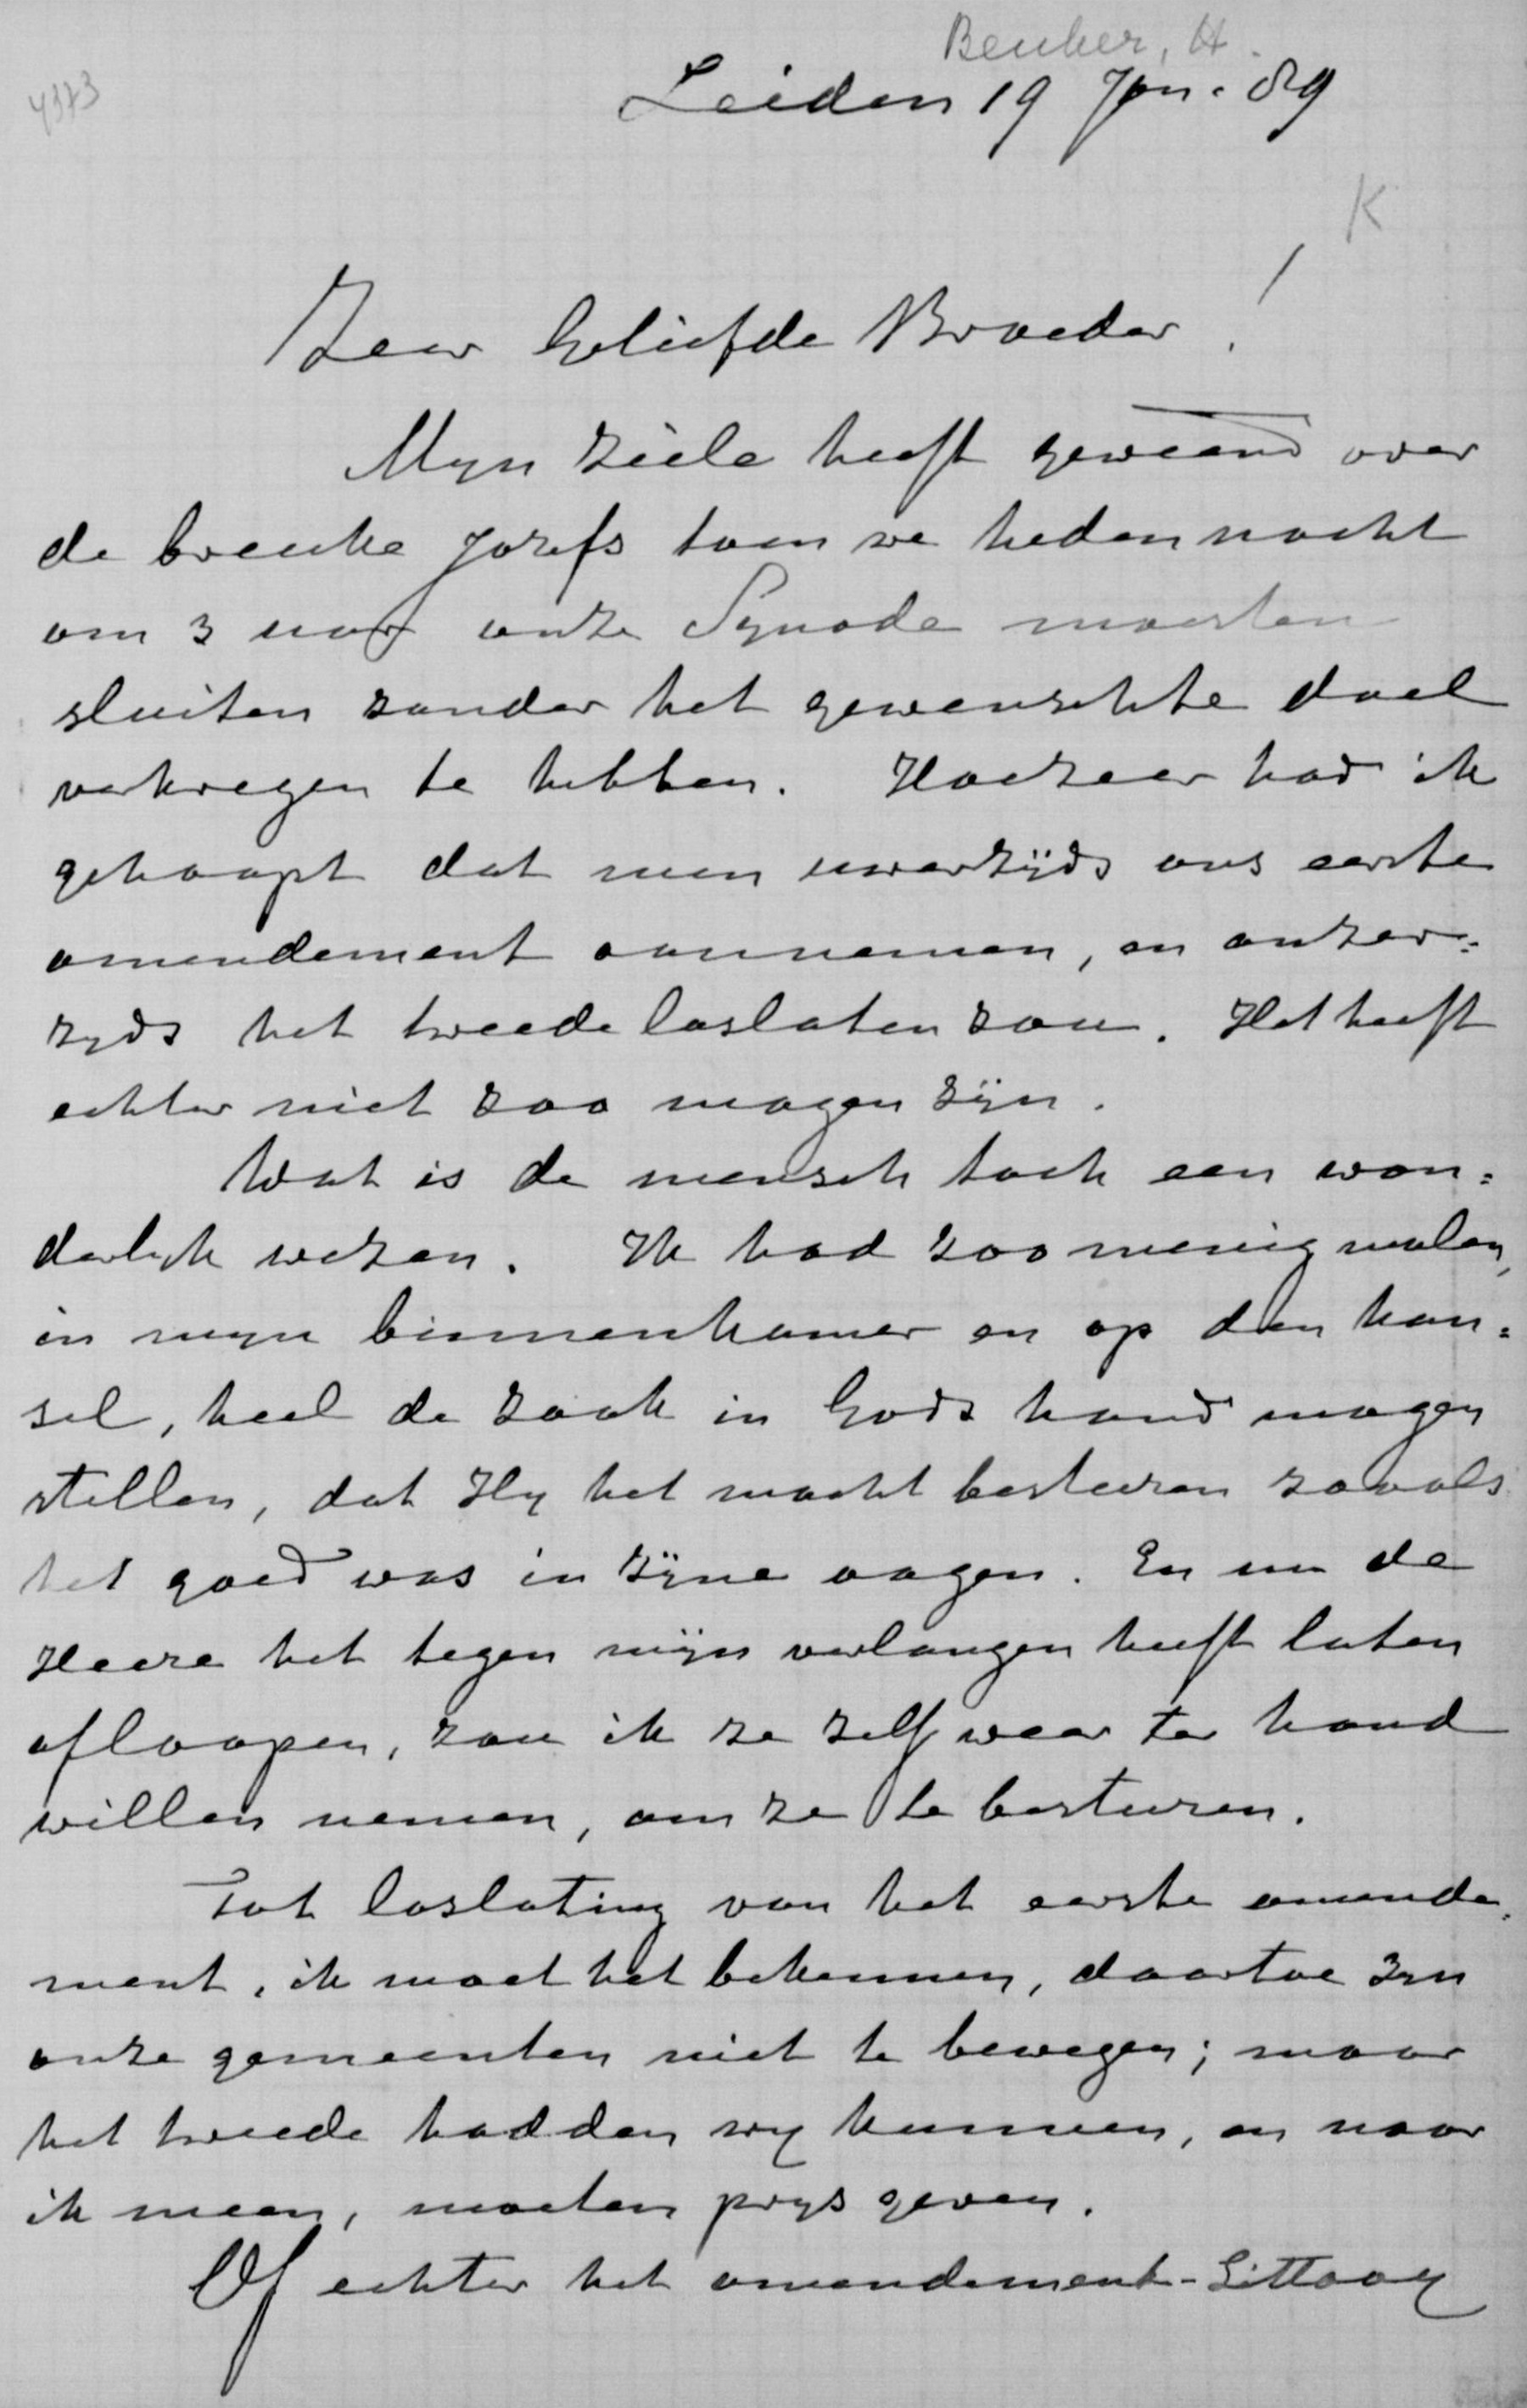 Beuker, H.
4373
Leiden 19 Jan. 89
K
Zeer Geliefde Broeder!
Myn ziele heeft geweend over
de breuke Jozefs toen we hedennacht
om 3 uur onze Synode moesten
sluiten zonder het gewenschte doel
verkregen te hebben. Hoezeer had ik
gehoopt dat men uwerzijds ons eerste
amendement aannemen, en onzer=
zyds het tweede loslaten zou. Het heeft
echter niet zoo mogen zijn.
Wat is de mensch toch een won=
derlyk wezen. Ik had zoo menigmalen,
in myn binnenkamer en op den kan=
sel, heel de zaak in Gods hand mogen
stellen, dat Hy het mocht besturen zooals
het goed was in zijne oogen. En nu de
Heere het tegen mijn verlangen heeft laten
afloopen, zou ik ze zelf weer ter hand
willen nemen, om ze te besturen.
Tot loslating van het eerste amende=
ment, ik moet het bekennen, daartoe zyn
onze gemeenten niet te bewegen; maar
het tweede hadden wy kunnen, en naar
ik meen, moeten prys geven.
Of echter het amendement-Littooy